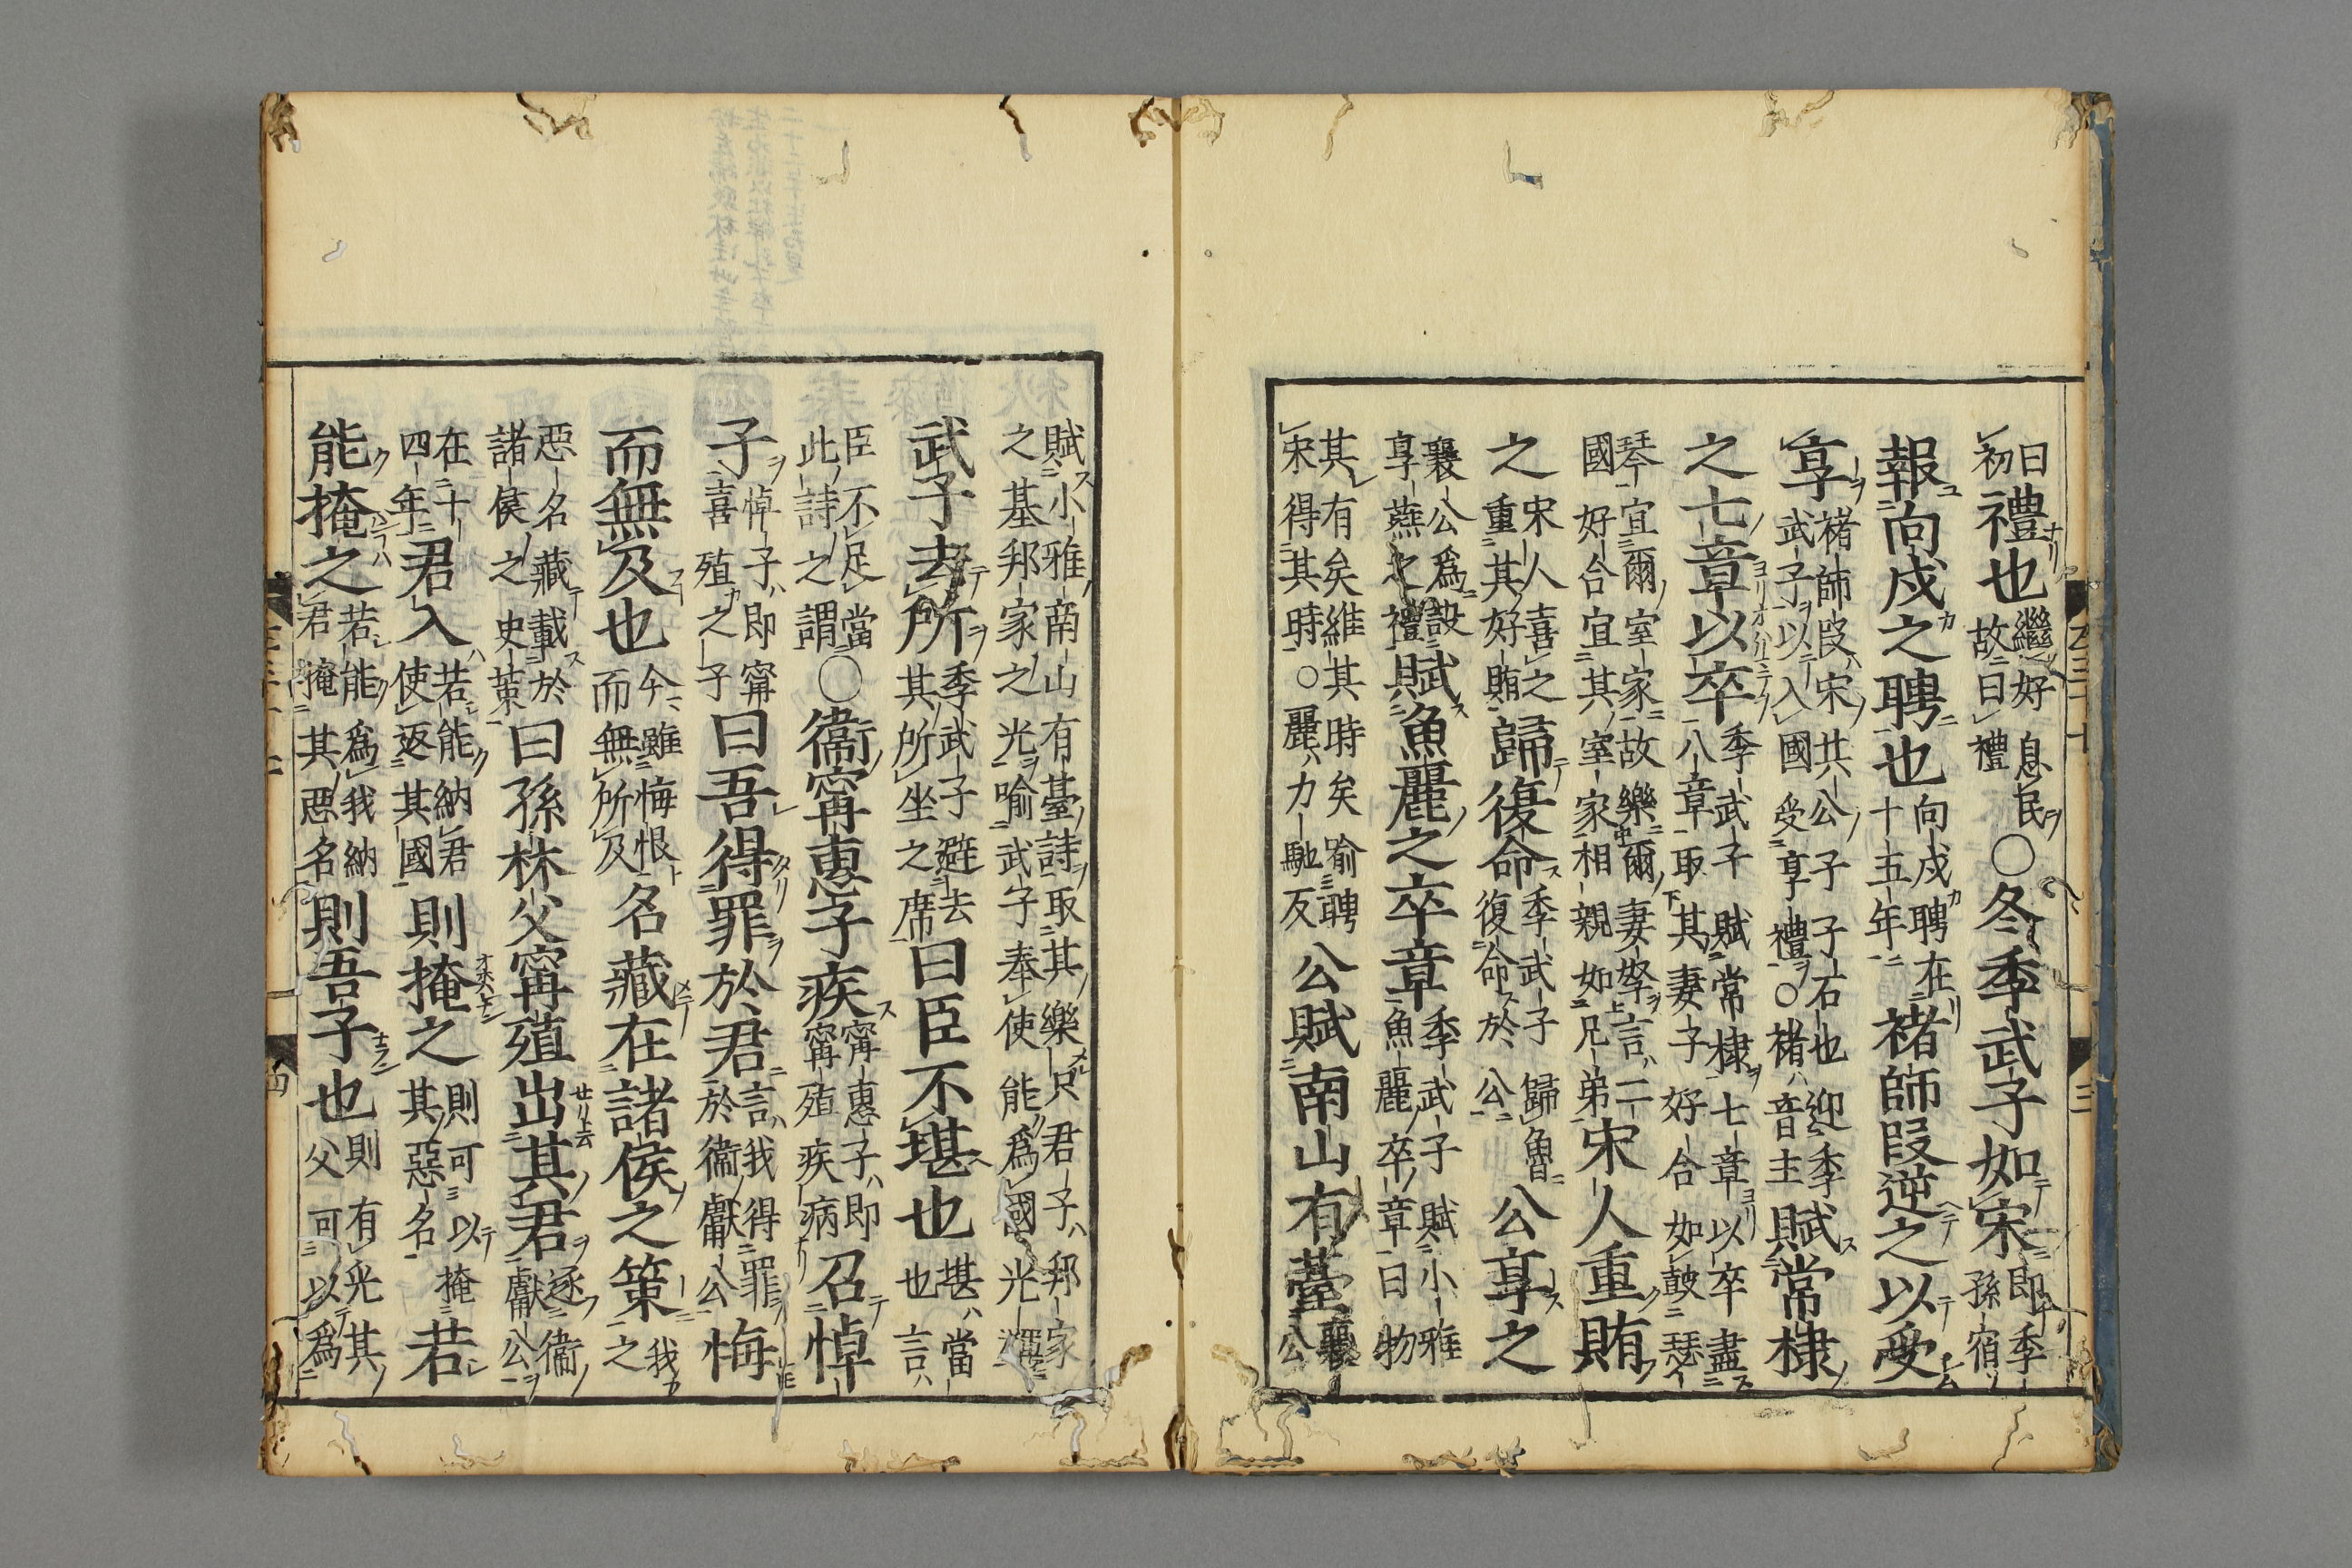 曰初禮也繼好息民故曰禮○冬季武子如宋即季孫宿
報向戌之聘也向戌聘在十五年褚師段逆之以受
享褚師段宋共公子子石也迎季武子以入國受享禮○褚音主賦常棣
之七章以卒季武子賦常棣七章以卒盡八章取其妻子好合如鼓瑟
琴宜爾室家故樂爾妻孥言二國好合宜其室家相親如兄弟宋人重賄
之宋人喜之重其好賄歸復命季武子歸魯復命於公公享之
襄公爲設享燕之禮賦魚麗之卒章季武子賦小雅魚麗卒章曰物
其有矣維其時矣喻聘宋得其時○麗力馳反公賦南山有薹襄公
賦小雅南山有薹詩取其樂只君子邦家之基邦家之光喻武子奉使能爲國光輝
武子去所季武子避去其所坐之席曰臣不堪也堪當也言
臣不足當此詩之謂○衞甯惠子疾甯惠子即甯殖疾病召悼
子悼子即甯喜殖之子曰吾得罪於君言我得罪於衞獻公悔
而無及也今雖悔恨而無所及名藏在諸侯之策我之
惡名藏載於諸侯之史策曰孫林父甯殖出其君逐衞獻公
在十四年君入若能納君使返其國則掩之則可以掩其惡名若
能掩之若能爲我納君掩其惡名則吾子也則有光其父可以爲